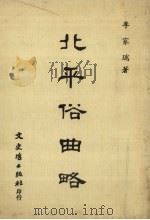 李家瑞著
北平俗曲略
文史哲出版社印行